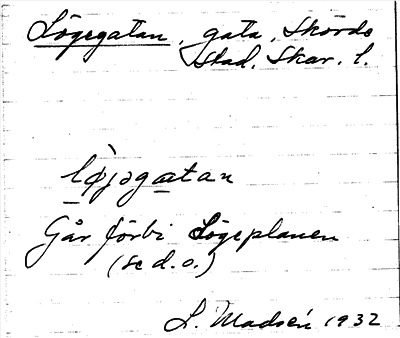 Lögegatan, gata, Skövde
stad, Skar. l.
lø̀jəgatan
Går förbi Lögeplanen
(se d.o.)
L. Madsén 1932